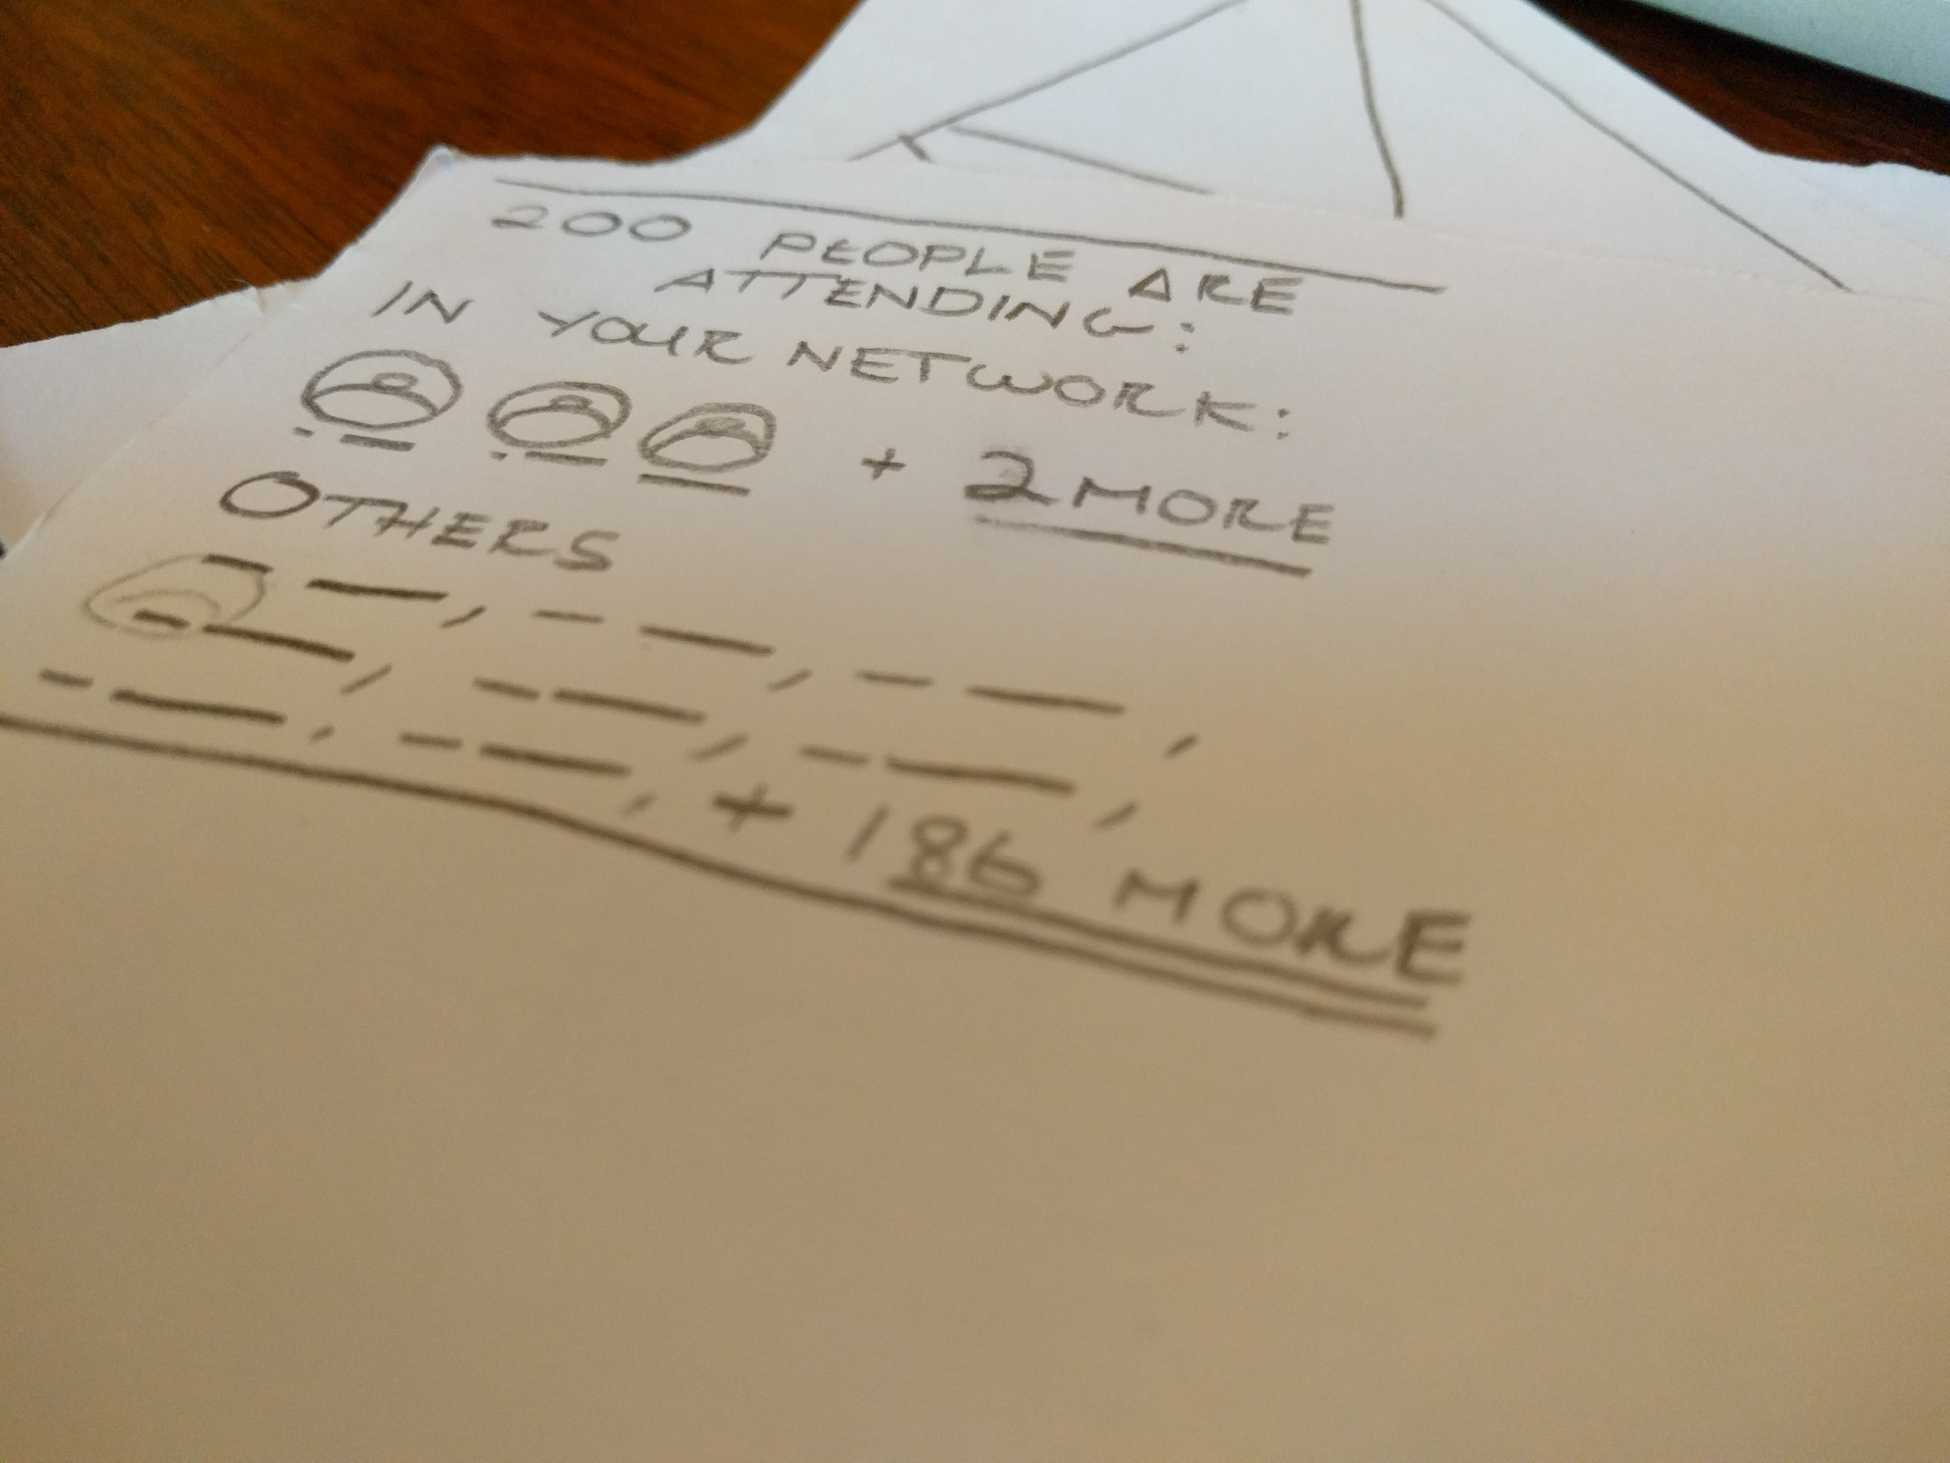 200 PEOPLE ARE
ATTENDING:
IN YOUR NETWORK:
+ 2 MORE
OTHERS
+ 186 MORE